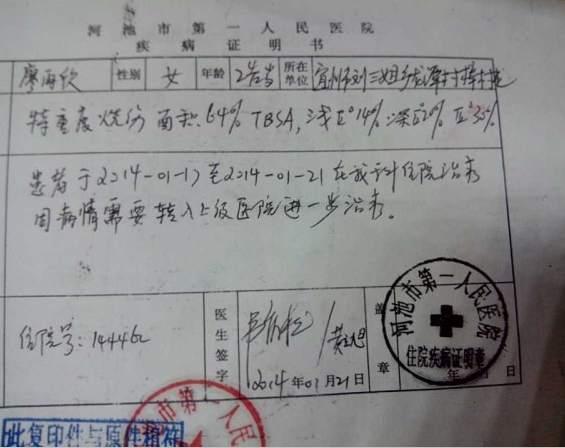 河池市第一人民医院
疾病证明书
廖海欣 性别 女 年龄 2岁 所在单位 宜州市刘三姐乡
特重度烧伤 面积64% TBSA,浅II°14% 深II°20% III°30%
患者于2014-01-17至2014-01-21在我科住院治疗
因病情需要转入上级医院进一步治疗。
住院号:144462 医生签字 盖章
2014年01月21日 年 日
河池市第一人民医院
住院疾病证明章
市第一人民
此复印件与原件相符